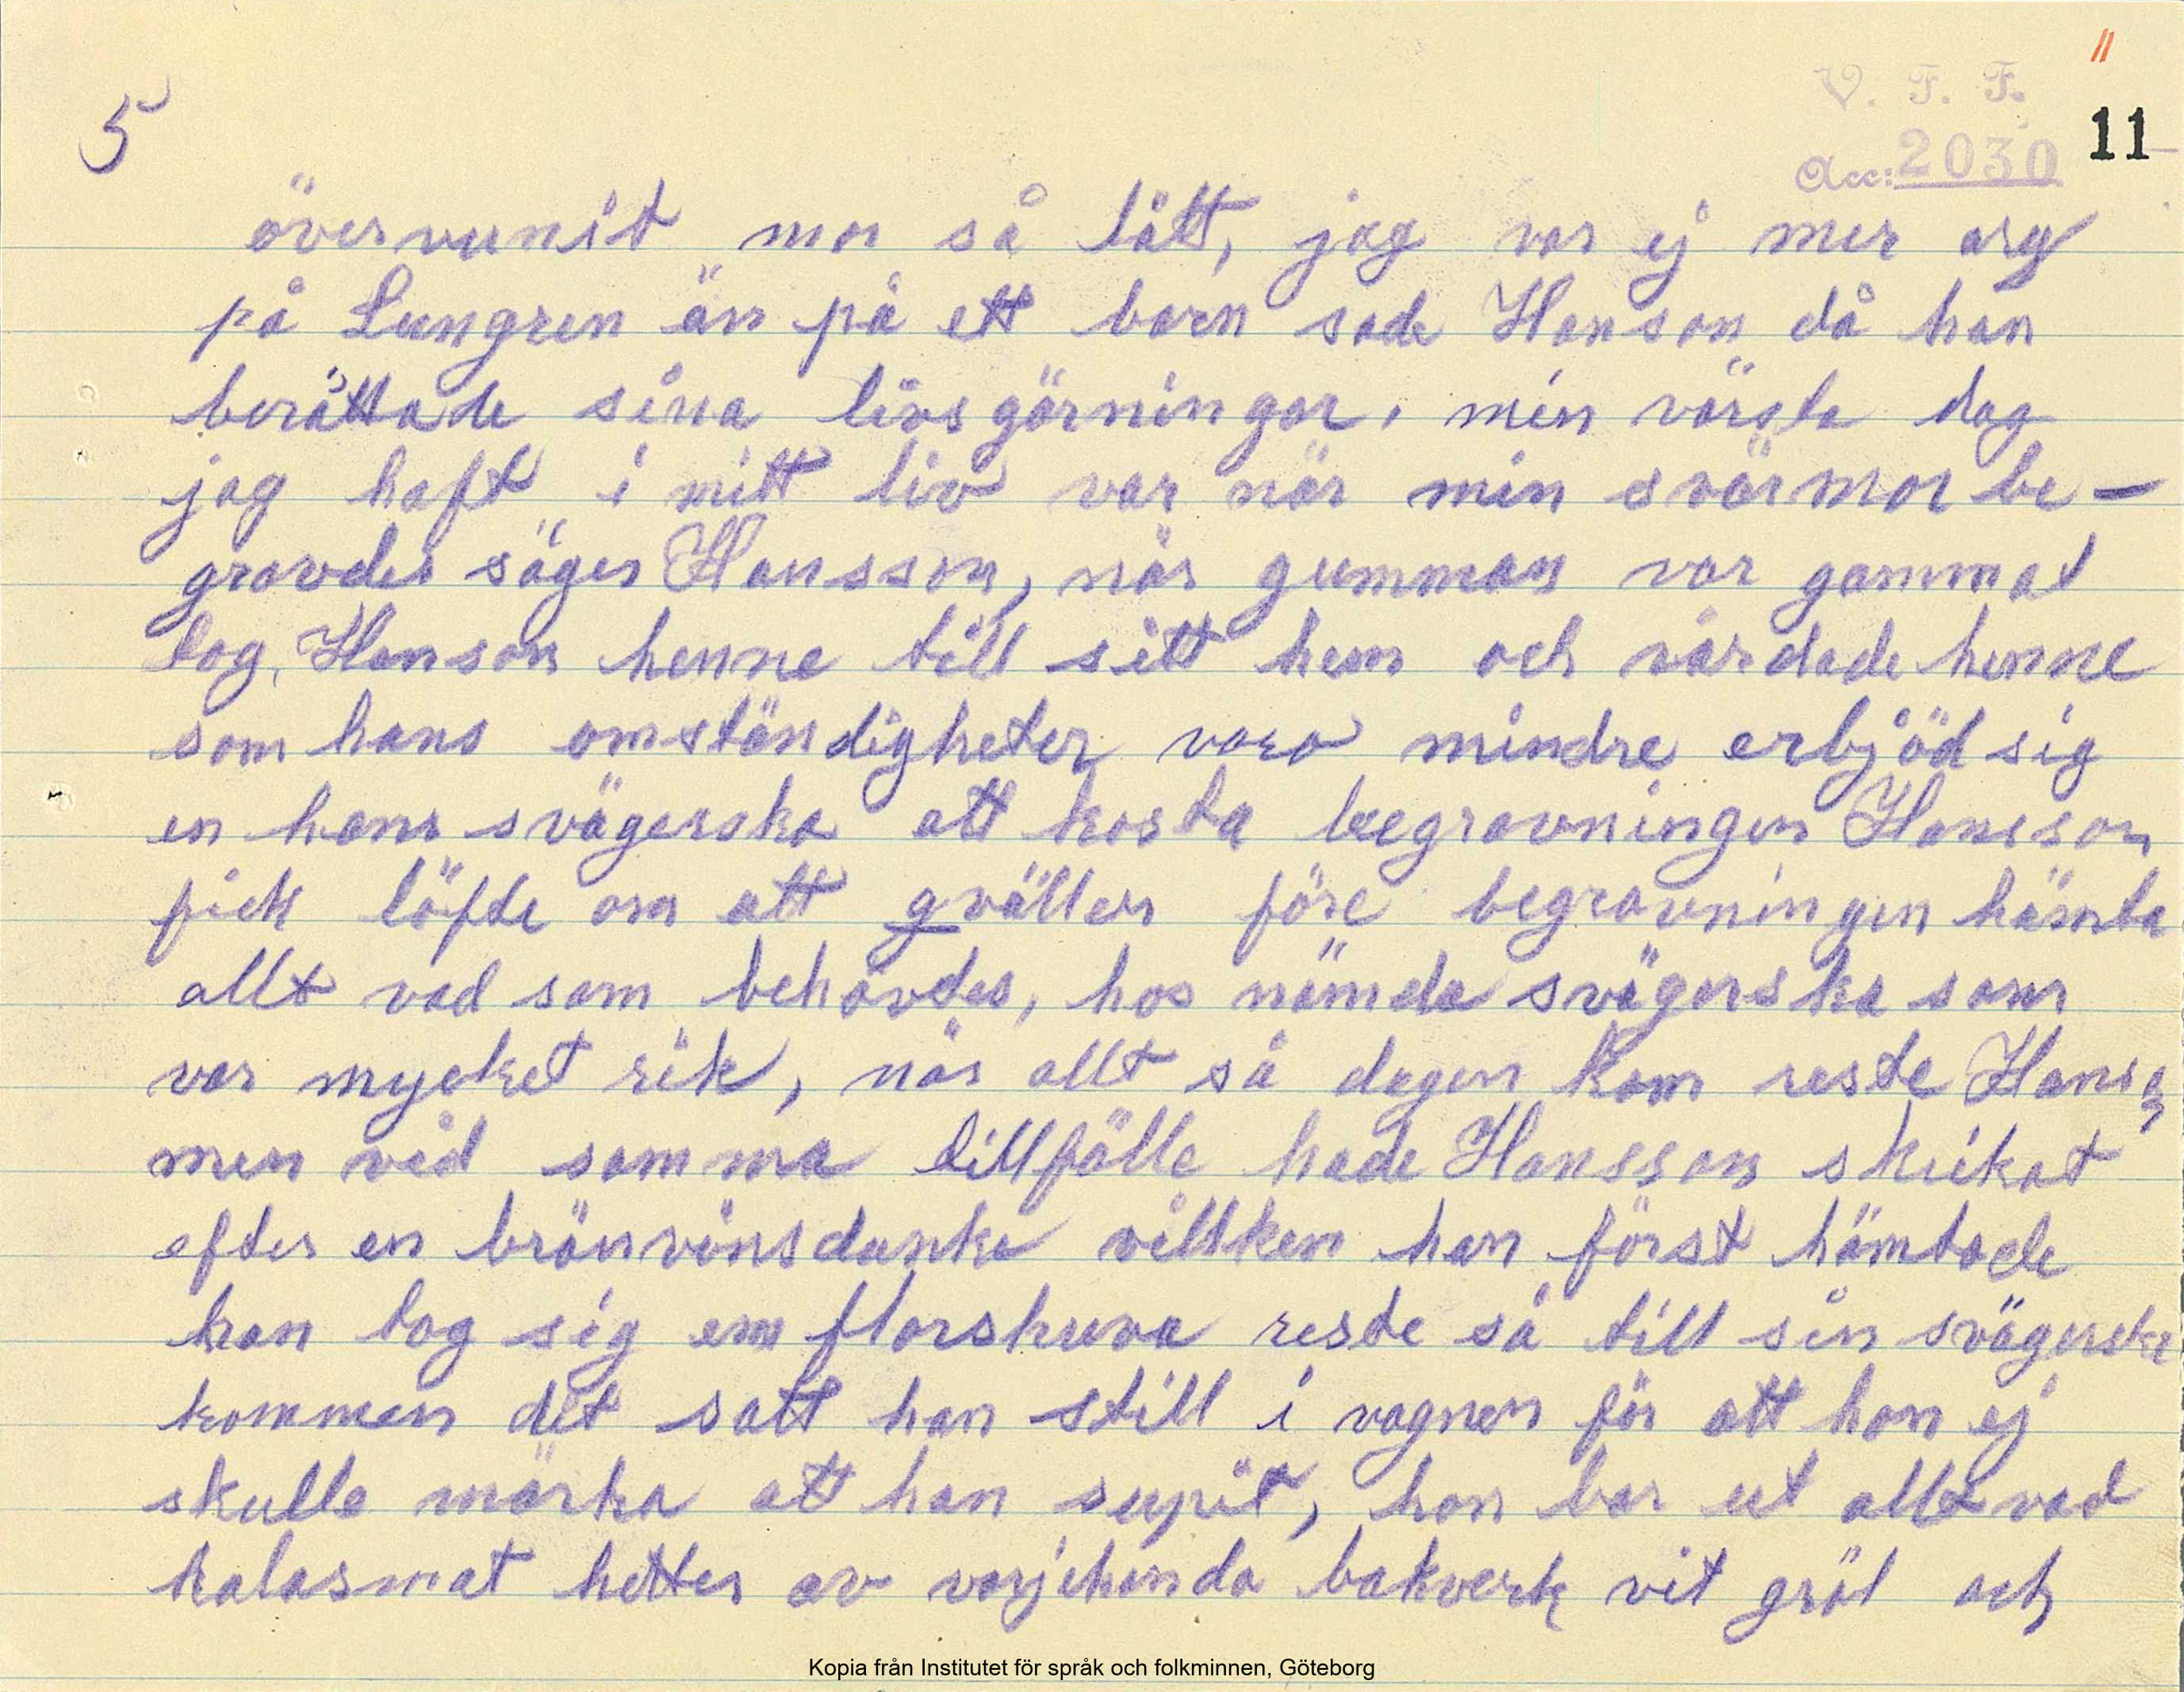 11
V. F. F.
5 11
Acc: 2030
övervunit mor så lätt, jag var ej mer arg
på Lungren än på ett barn sade Hanson då han
berättade sina livsgärningar, min värsta dag
jag haft i mitt liv var när min svärmor be-
gravdes säger Hansson, när gumman var gammal
tog Hanson henne till sitt hem och vårdade henne
som hans omständigheter voro mindre erbjöd sig
en hans svägerska att kosta begravningen Hansson
fick löfte om att qvällen före begravningen hämta
allt vad som behövdes, hos nämda svägerska som
var mycket rik, när allt så dagen kom reste Hanson
men vid samma tillfälle hade Hansson skrikat
efter en bränvinsdunke vilken han först hämtade
han tog sig em florshuva reste så till sin svägerska
kommen dit satt han still i vagnen för att hon ej
skulle märka att han supit, hon bar ut allt vad
kalasmat hetter av varjehanda bakverk vit gröt och
Kopia från Institutet för språk och folkminnen, Göteborg